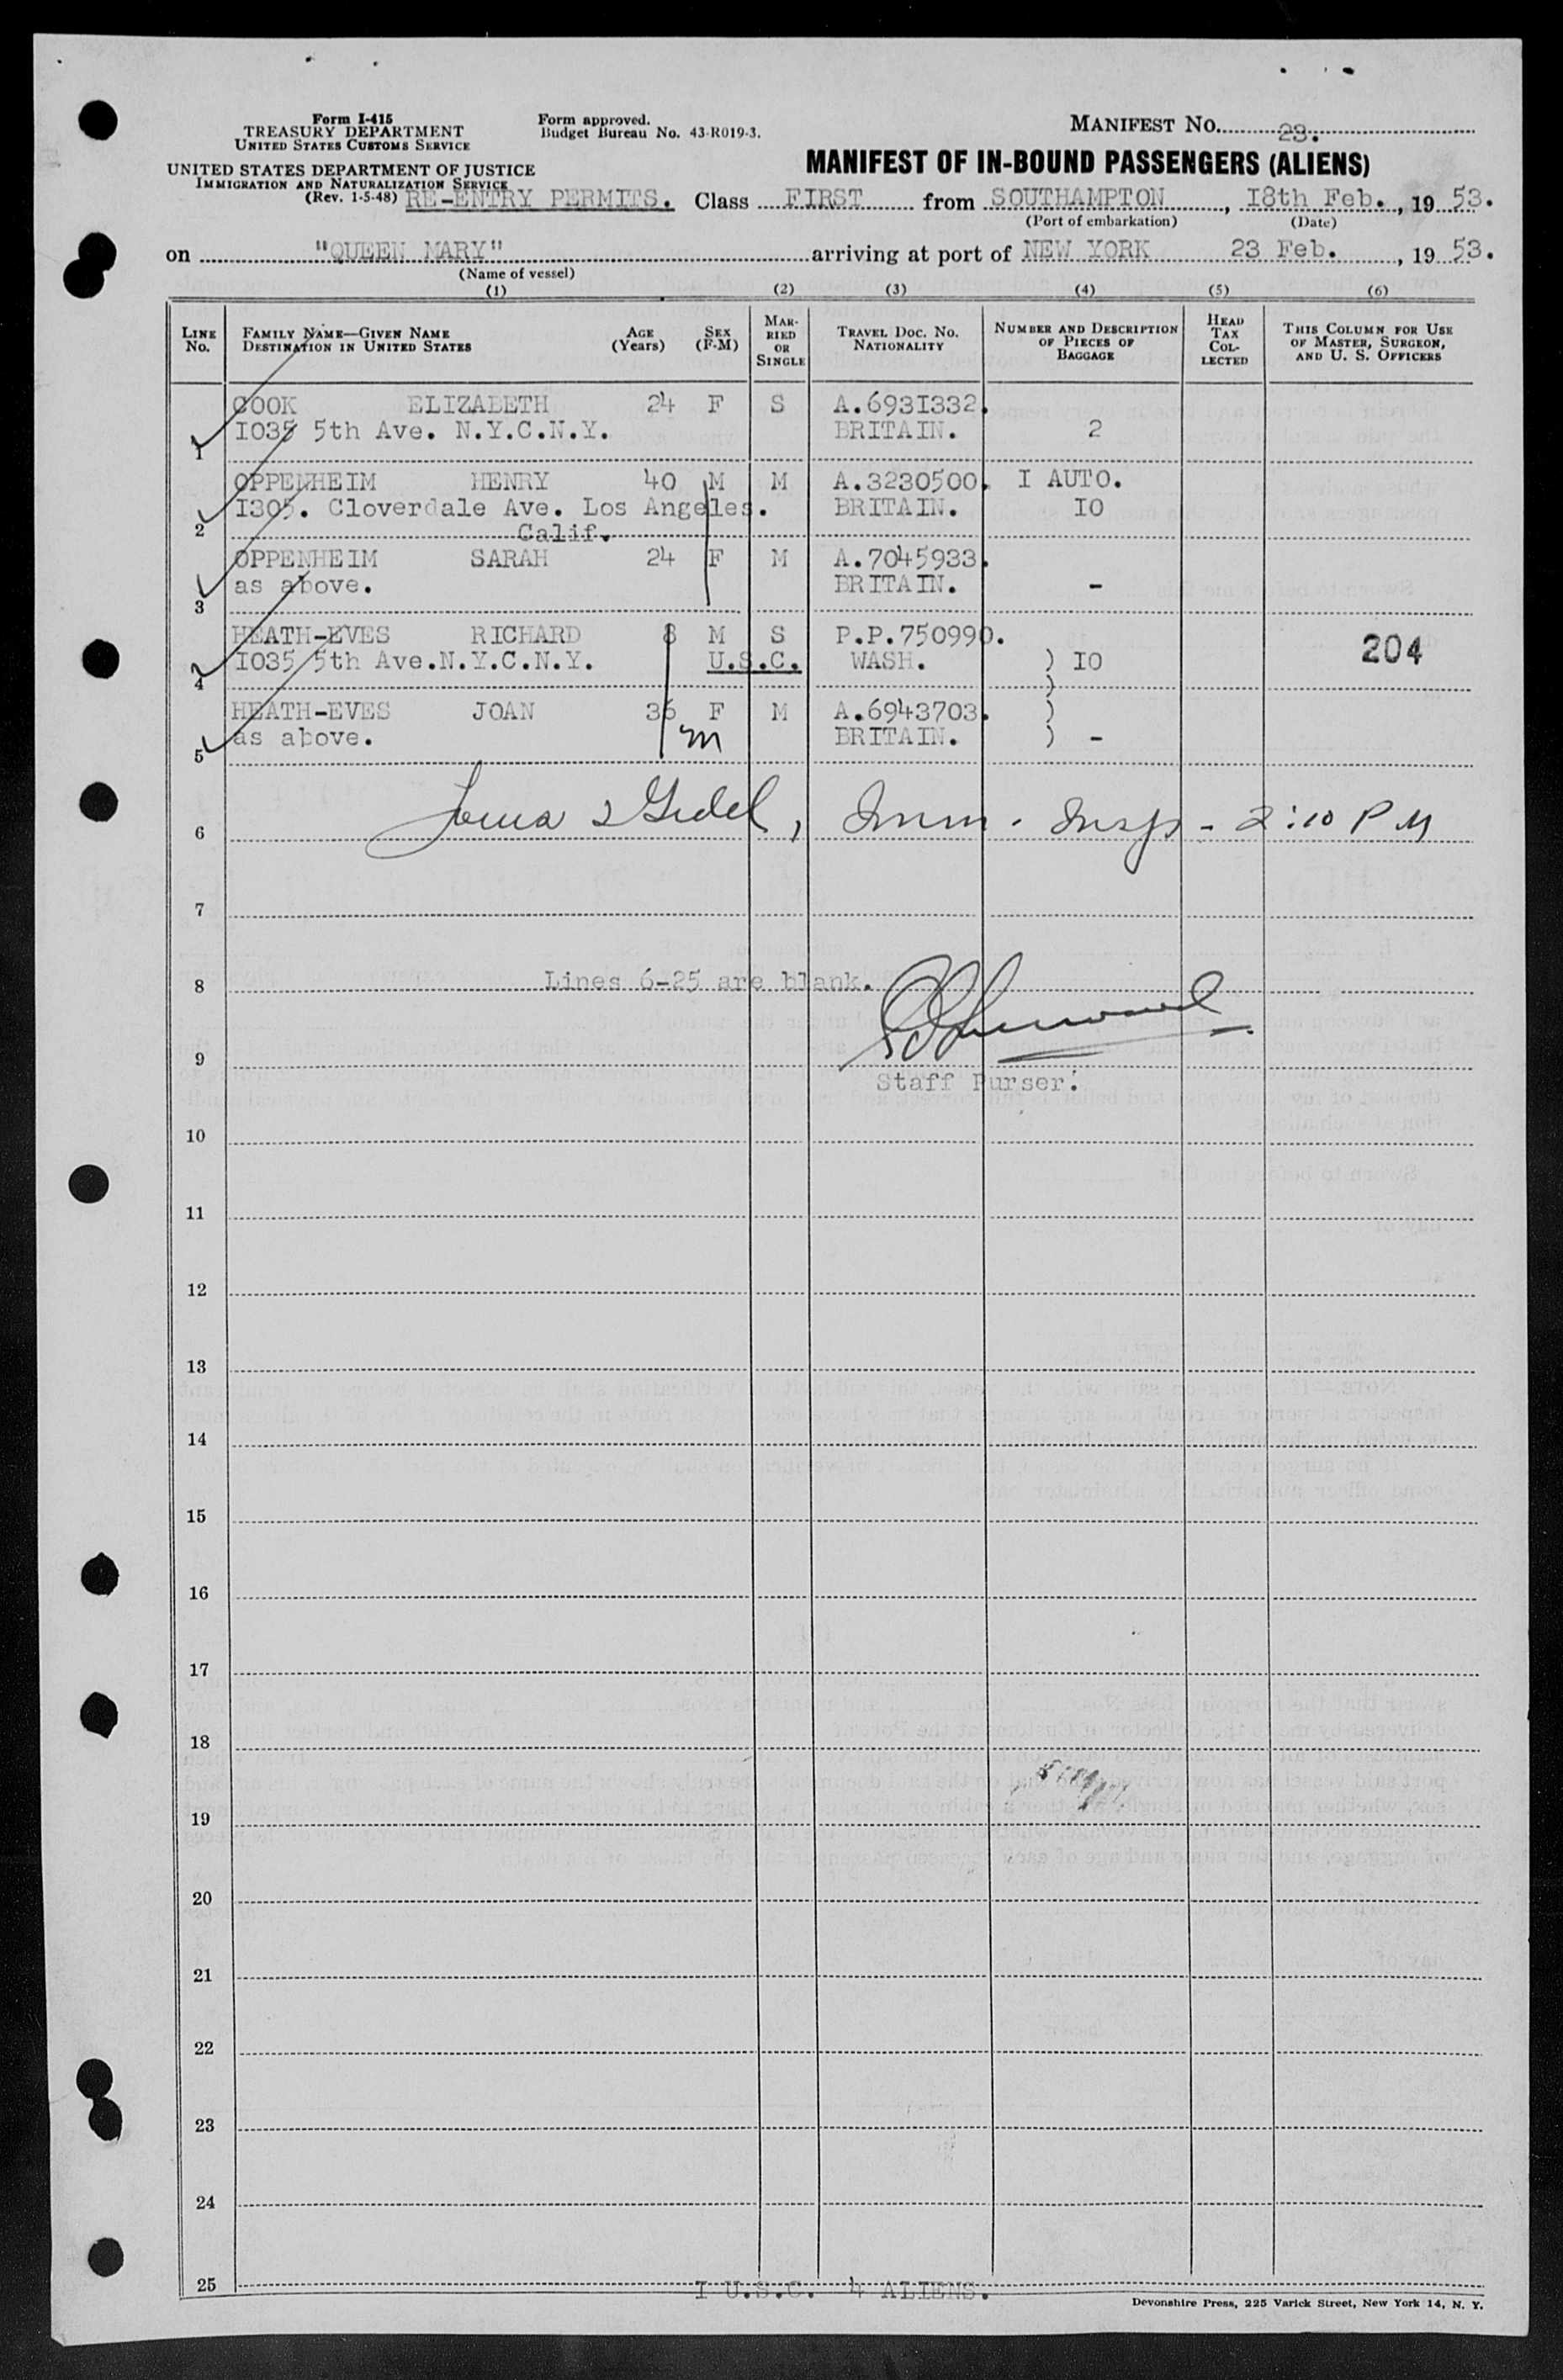 Form I-415
TREASURY DEPARTMENT
UNITED STATES CUSTOMS SERVICE
Form approved.
Budget Bureau No. 43-R019-3.
MANIFEST NO. 23.
UNITED STATES DEPARTMENT OF JUSTICE
IMMIGRATION AND NATURALIZATION SERVICE
(Rev. 1-5-48)
MANIFEST OF IN-BOUND PASSENGERS (ALIENS)
RE-ENTRY PERMITS. Class FIRST from SOUTHAMPTON, I8th Feb., 19 53.
(Port of embarkation) (Date)
on "QUEEN MARY" arriving at port of NEW YORK 23 Feb. , 19 53.
(Name of vessel)
(1) (2) (3) (4) (5) (6)
LINE No. FAMILY NAME—GIVEN NAME DESTINATION IN UNITED STATES AGE (Years) SEX (F-M) MARRIED OR SINGLE TRAVEL DOC. NO. NATIONALITY NUMBER AND DESCRIPTION OF PIECES OF BAGGAGE HEAD TAX COLLECTED THIS COLUMN FOR USE OF MASTER, SURGEON, AND U. S. OFFICERS
COOK ELIZABETH 24 F S A.693I332.
1 I035 5th Ave. N.Y.C.N.Y. BRITAIN. 2
OPPENHEIM HENRY 40 M M A.3230500. I AUTO.
I305. Cloverdale Ave. Los Angeles. BRITAIN. IO
2 Calif.
OPPENHEIM SARAH 24 F M A.7045933.
3 as above. BRITAIN. -
HEATH-EVES RICHARD 8 M S P.P.750990.
4 I035 5th Ave.N.Y.C.N.Y. U.S.C. WASH. ) IO 204
)
HEATH-EVES JOAN 36 F M A.6943703. )
5 as above. m BRITAIN. ) -
6 , Imm. Insp - 2:10 PM
7
8 Lines 6-25 are blank.
9
Staff Purser.
10
11
12
13
14
15
16
17
18
19
20
21
22
23
24
25
I U.S.C. 4 ALIENS.
Devonshire Press, 225 Varick Street, New York 14, N. Y.